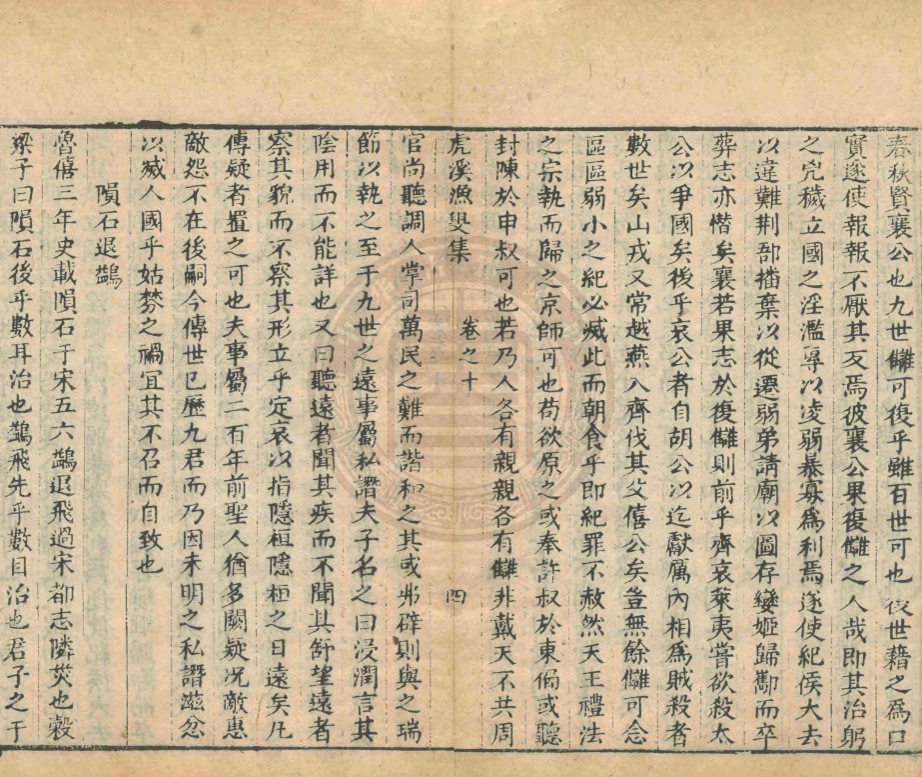 春秋賢襄公也九世讎可復乎雖百世可也後世藉之爲口
實遂使報報不厭其反焉彼襄公果復讎之人哉即其治躬
之兇穢立國之淫濫專以凌弱暴寡爲利焉遂使紀侯大去
以違難荆郚播棄以從遷弱弟請廟以圖存孌姬歸酅而卒
葬志亦憯矣襄若果志於復讎則前乎齊哀萊夷嘗欲殺太
公以爭國矣後乎哀公者自胡公以迄獻厲內相爲賊殺者
數世矣山戎又常越燕入齊伐其父僖公矣豈無餘讎可念
區區弱小之紀必滅此而朝食乎即紀罪不赦然天王禮法
之宗執而歸之京師可也苟欲原之或奉許叔於東偏或聽
封陳於申叔可也若乃人各有親親各有讎非戴天不共周
虎溪漁叟集 卷之十 四
官尚聽調人掌司萬民之難而諧和之其或弗辟則與之瑞
節以執之至于九世之遠事屬私譖夫子名之曰浸潤言其
陰用而不能詳也又曰聽遠者聞其疾而不聞其舒望遠者
察其貌而不察其形立乎定哀以指隱桓隱桓之日遠矣凡
傳疑者置之可也夫事屬二百年前聖人猶多闕疑况敵惠
敵怨不在後嗣今傳世已歷九君而乃因未明之私譖滋忿
以滅人國乎姑棼之禍宜其不召而自致也
隕石退鷁
魯僖三年史載隕石于宋五六鷁退飛過宋都志隣災也穀
梁子曰隕石後乎數耳治也鷁飛先乎數目治也君子之于